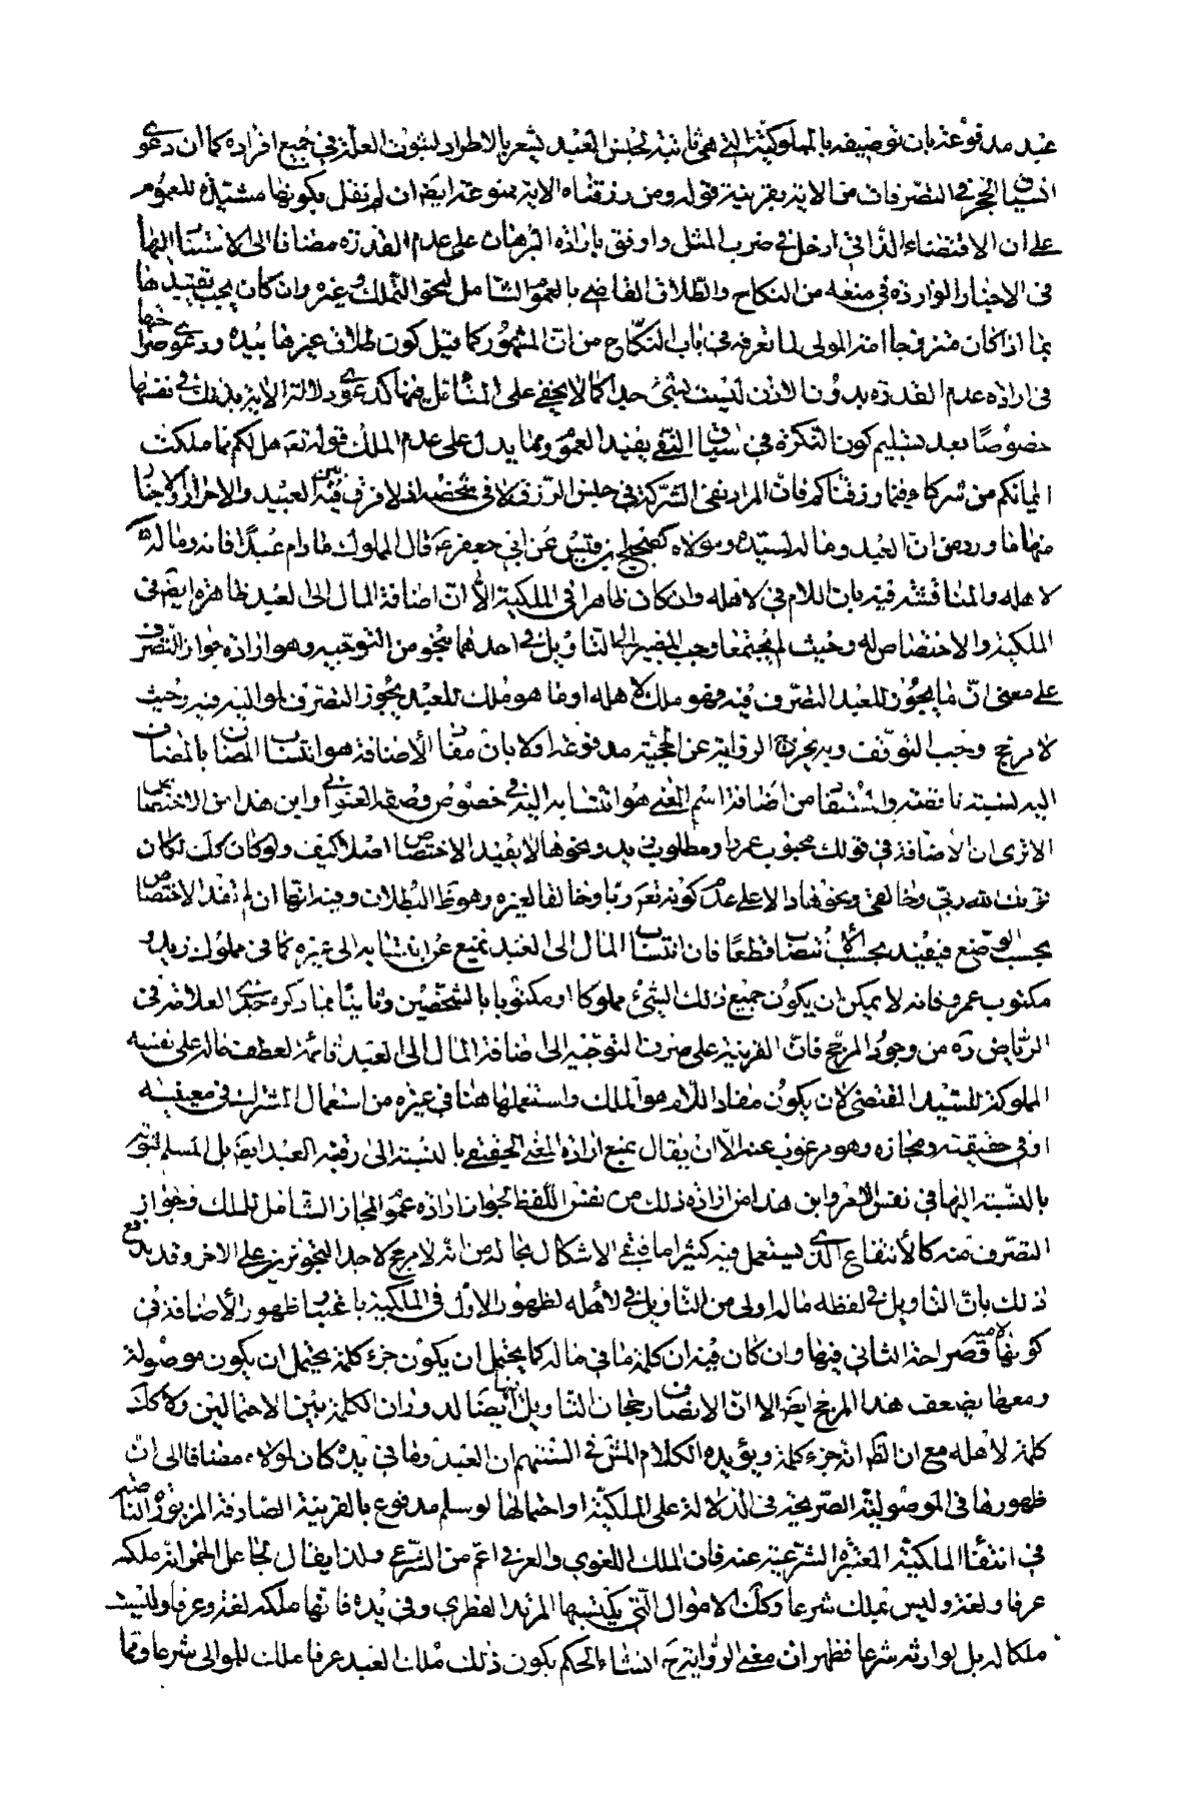 عبد مدفوعة بان توصيفه بالمملوكية التي هي ثابتة لجنس العبد يشعر بالاطراد لثبوت العلة في جميع افراده كما ان دعوى
انسياق الحجر في التصرفات من الاية بقرينة قوله ومن رزقناه الاية ممنوعة ايضا ان لم نقل بكونها مشتبه للعموم
على ان الاقتضاء الذاتي ادخل في ضرب المثل واوفق بارادة البرهان على عدم القدرة مضافا الى الاستناد اليها
في الاخبار الواردة في منعه من النكاح والطلاق القاضي بالعموم الشامل لنحو التملك وغيره وان كان يجب تقييدها
بما اذا كان متزوجا امة المولى لما تعرفه في باب النكاح من ان المشهور كما قيل كون طلاق غيرها بيده ودعوى صراحتها
في ارادة عدم القدرة بدون الاذن ليست بشئ جدا كما لا يخفى على المتامل فيها كدعوى دلالة الاية بذلك في نفسها
خصوصا بعد تسليم كون النكرة في سياق النفي يفيد العموم ومما يدل على عدم الملك قوله تعه هل لكم مما ملكت
ايمانكم من شركاء فيما رزقناكم فان المراد نفى الشركة في جنس الرزق لا في شخصه اذ لا فرق فيه بين العبيد والاحرار والاخبار
منها ما ورد من ان العبد وماله لسيده ومولاه كصحيح ابن قيس عن ابي جعفر ع قال المملوك ما دام عبدا فانه وماله
لاهله والمناقشة فيه بان اللام في لاهله وان كان ظاهرا في الملكية الا ان اضافة المال الى العبد ظاهرة ايضا في
الملكية والاختصاص له وحيث لم يجتمعا وجب المصير الى التاويل في احدهما بنحو من التوجيه وهو ارادة جواز التصرف
على معنى ان ما يجوز للعبد التصرف فيه فهو ملك لاهله او ما هو ملك للعبد يجوز التصرف لمواليه فيه وحيث
لا مرجح وجب التوقف وبه يخرج الرواية عن الحجية مدفوعة اولا بان مفاد الاضافة هو انتساب المضاف بالمضاف
اليه لنسبة ناقصة واشتقاقا من اضافة اسم المعنى هو انتسابه اليه في خصوص وصفه العنواني واين هذا من الاختصاص
الا ترى ان الاضافة في قولك محبوب عمرو ومطلوب زيد ونحوها لا يفيد الاختصاص اصلا كيف ولو كان كك لكان
قولك الله ربي وخالقي ونحوهما دالا على عدم كونه تعه ربا وخالقا لغيره وهو ظ البطلان وفيه انها ان لم تفد الاختصاص
بحسب الوضع فيفيد بحسب الانتساب قطعا فان انتساب المال الى العبد تمنع عن انتسابه الى غيره كما في مملوك زيد و
مكتوب عمرو فانه لا يمكن ان يكون جميع ذلك الشئ مملوكا او مكتوبا بالشخصين وثانيا بما ذكره جدي العلامة في
الرياض ره من وجود المرجح فان القرينة على صرف التوجيه الى اضافة المال الى العبد قائمة لعطف ماله على نفسه
المملوكة للسيد المقتضى لان يكون مفاد اللام هو الملك واستعمالها هنا في غيره من استعمال المشترك في معنييه
او في حقيقته ومجازه وهو مرغوب عنه الا ان يقال بمنع ارادة المعنى الحقيقي بالنسبة الى رقبة العبد ايضا بل المسلم ثبوته
بالنسبة اليها في نفس الامر واين هذا من ارادة ذلك من نفس اللفظ لجواز ارادة عموم المجاز الشامل للملك وجواز
التصرف منه كالانتفاع الذي يستعمل فيه كثيرا ما فيبقى الاشكال بحاله من انه لا مرجح لاحد التجوزين على الاخر وقد يدفع
ذلك بان التاويل في لفظه ماله اولى من التاويل في لاهله لظهور الاول في الملكية باعتبار ظهور الاضافة في
كونها لامية وصراحة الثاني فيها وان كان فيه ان كلمة ما في ماله كما يحتمل ان يكون جزء كلمة يحتمل ان يكون موصولة
ومعها يضعف هذا المرجح ايضا الا ان الانصاف رجحان التاويل ايضا لدوران الكلمة بين الاحتمالين ولا كك
كلمة لاهله مع ان الظ انه جزء كلمة ويؤيده الكلام المثل في السنتهم ان العبد وما في يده كان لمولاه مضافا الى ان
ظهورها في الموصولية الصريحة في الدلالة على الملكية او احتمالها لو سلم مدفوع بالقرينة الصادفة المزبورة الناصة
في انتفاء الملكية المعتبرة الشرعية عنه فان الملك اللغوي والعرفي اعم من الشرعي ولذا يقال لجاعل الخمر انه ملكه
عرفا ولغة وليس بملك شرعا وكك الاموال التي يكتسبها المرتد الفطري وفي يده فانها ملكه لغة وعرفا وليست
ملكا له بل لوارثه شرعا فظهر ان معنى الرواية ح انشاء الحكم بكون ذلك ملك العبد عرفا ملك للموالي شرعا ومما